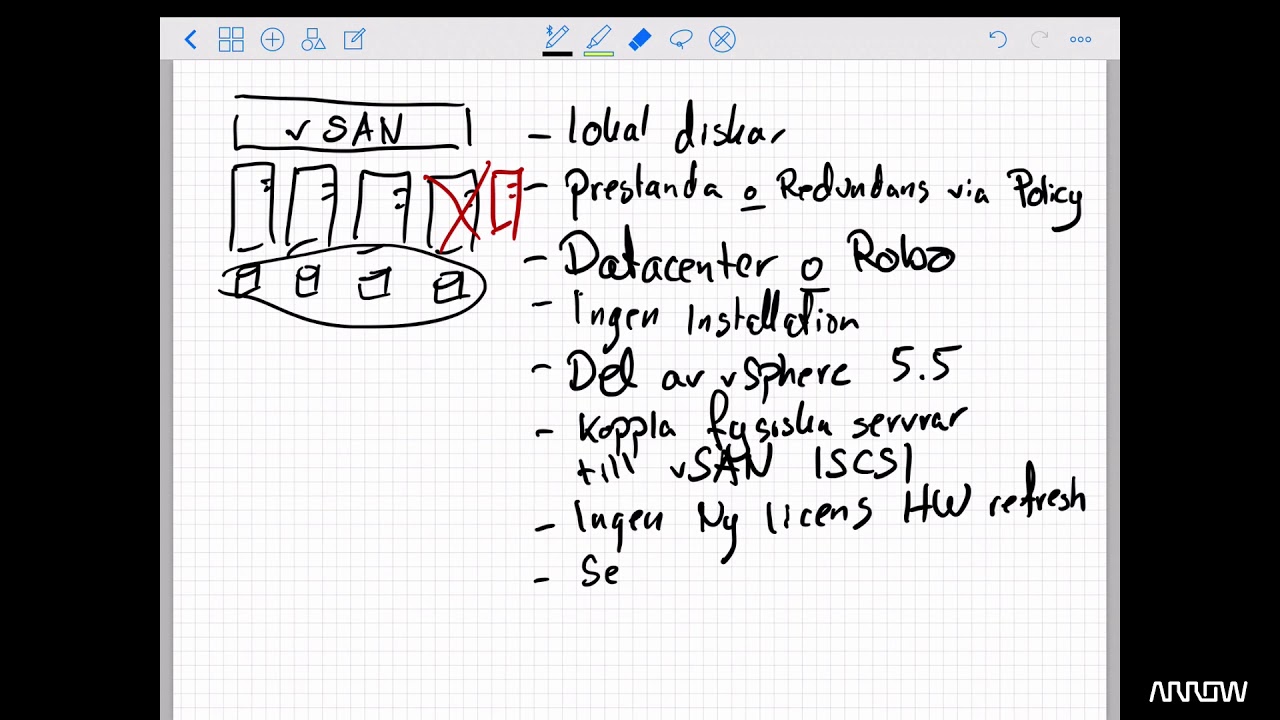 vSAN
- lokal diskar
- Prestanda o Redundans via Policy
- Datacenter o Robo
- Ingen Installation
- Del av vSphere 5.5
- Koppla fysiska servrar
till vSAN ISCSI
- Ingen Ny licens HW refresh
- Se
ARROW